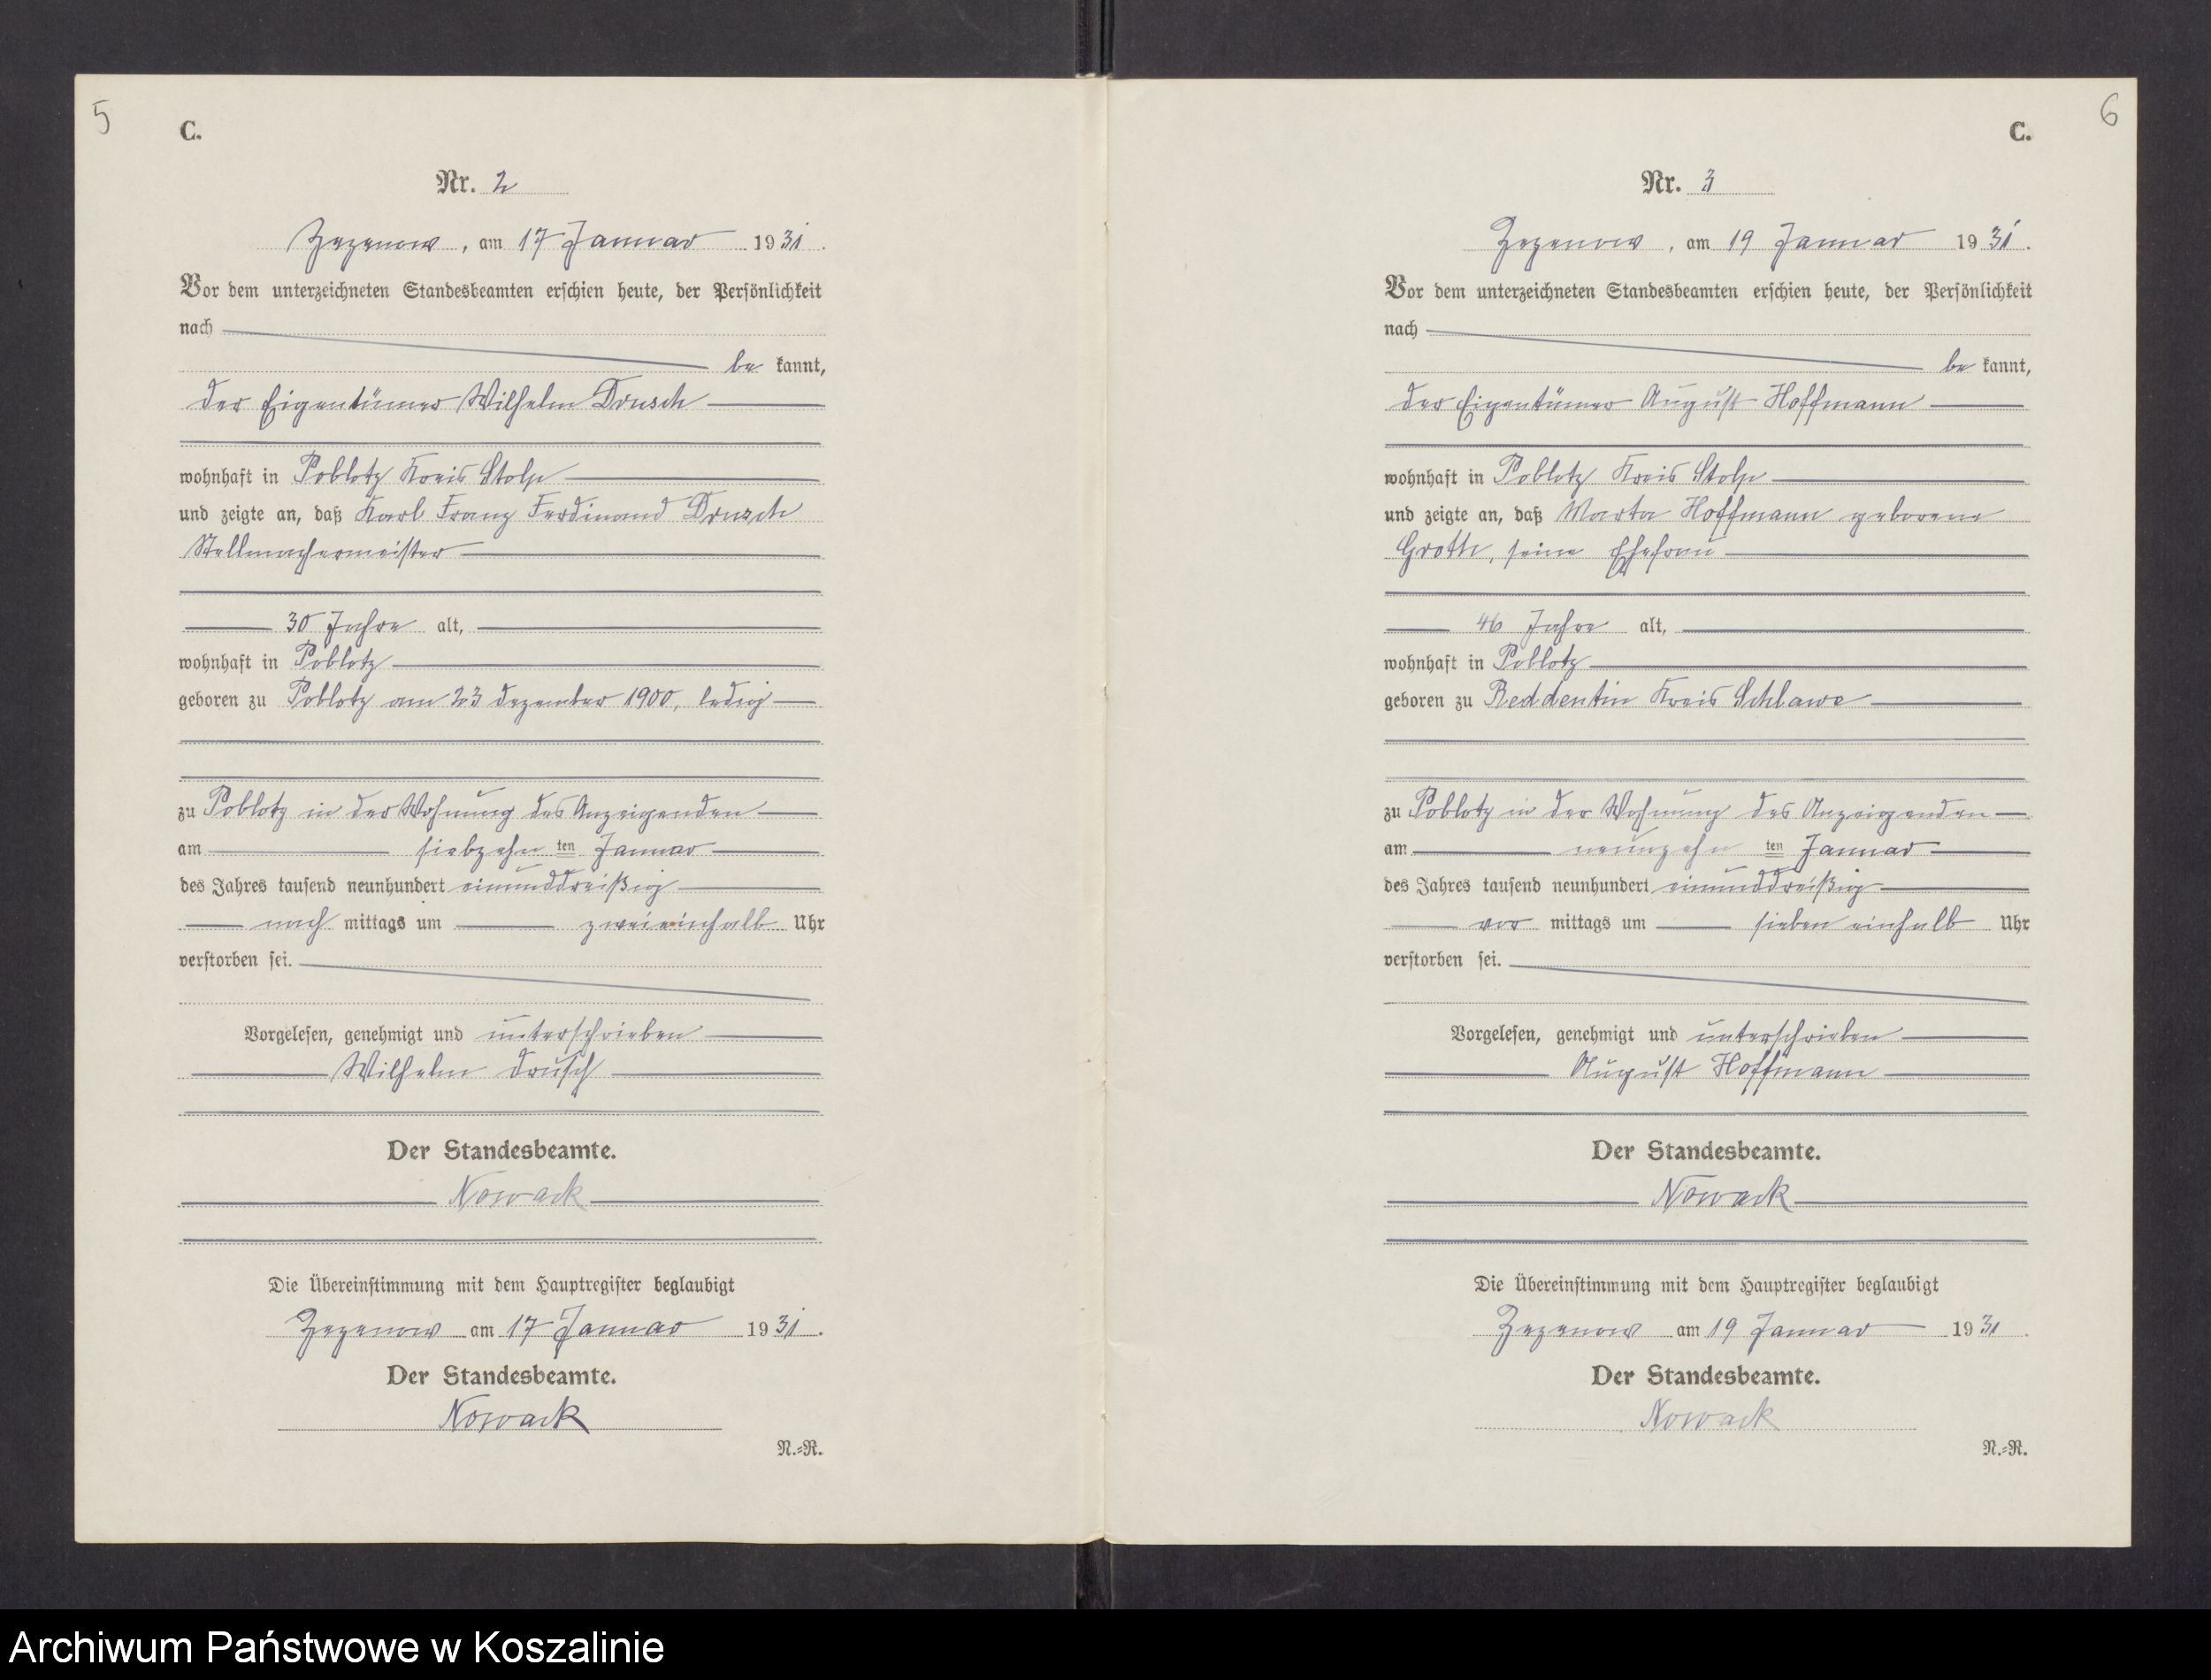 5
C.
Nr. 2
Zezenow, am 17 Januar 1931.
Vor dem unterzeichneten Standesbeamten erschien heute, der Persönlichkeit
nach
be kannt,
der Eigentümer Wilhelm Drusch
wohnhaft in Poblotz Kreis Stolp
und zeigte an, daß Karl Franz Ferdinand Drusch
Stellmachermeister
30 Jahre alt,
wohnhaft in Poblotz
geboren zu Poblotz am 23 Dezember 1900, ledig
zu Poblotz in der Wohnung des Anzeigenden
am siebzehn ten Januar
des Jahres tausend neunhundert einunddreißig
nach mittags um zweieinhalb Uhr
verstorben sei.
Vorgelesen, genehmigt und unterschrieben
Wilhelm Drusch
Der Standesbeamte.
Nowack
Die Übereinstimmung mit dem Hauptregister beglaubigt
Zezenow am 17 Januar 1931.
Der Standesbeamte.
Nowack
N.=R.
6
C.
Nr. 3
Zezenow, am 19 Januar 1931.
Vor dem unterzeichneten Standesbeamten erschien heute, der Persönlichkeit
nach
be kannt,
der Eigentümer August Hoffmann
wohnhaft in Poblotz Kreis Stolp
und zeigte an, daß Marta Hoffmann geborene
Groth, seine Ehefrau
46 Jahre alt,
wohnhaft in Poblotz
geboren zu Reddentin Kreis Schlawe
zu Poblotz in der Wohnung des Anzeigenden
am neunzehn ten Januar
des Jahres tausend neunhundert einunddreißig
vor mittags um sieben einhalb Uhr
verstorben sei.
Vorgelesen, genehmigt und unterschrieben
August Hoffmann
Der Standesbeamte.
Nowack
Die Übereinstimmung mit dem Hauptregister beglaubigt
Zezenow am 19 Januar 1931.
Der Standesbeamte.
Nowack
N.=R.
Archiwum Państwowe w Koszalinie